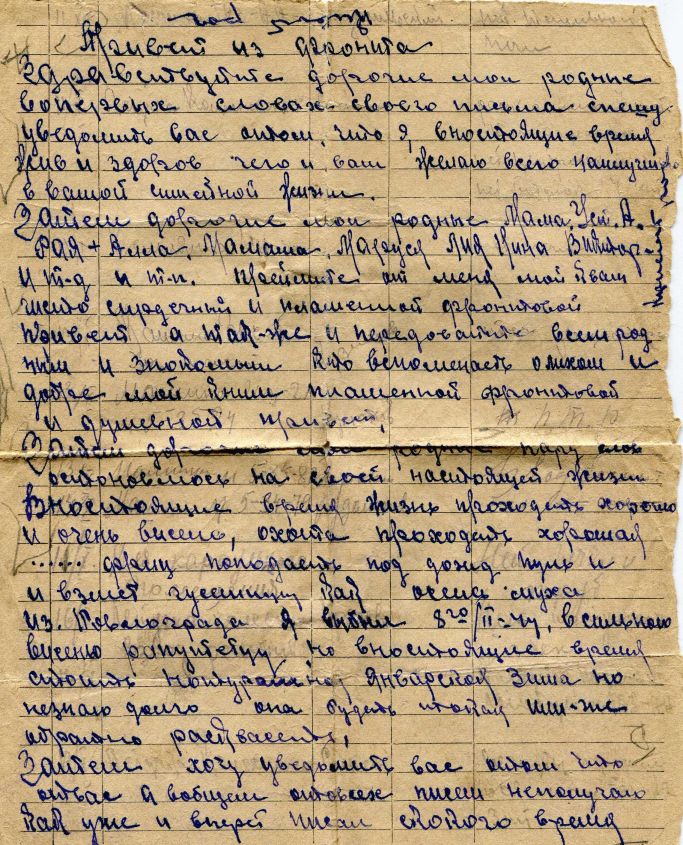 Привет из фронта
Здравствуйте дорогие мои родные
вопервых словах своего письма спешу
уведомить вас отом, что я, вностоящие время
жив и здоров чего и вам желаю всего наилучшего
в вашой симейной жизни.
Затем дорогие мои родные Мама, Уст. А.
Рая + Алла, Мамаша, Маруся Лия Нина Виктор
и т-д и т-п. Приймите от меня мой квам
чисто сердечный и пламенной фронтовой
привет а так-же и передовайте всем род
ным и знокомым кто вспоменаеть олихом и
добре мой кним пламенной фронтовой
и душевной привет,
Затем дорогие мои родные пару слов
остоновлюсь на своей настоящей жизни
Вностоящие время жизнь проходить хорошо
и очень висело, охота проходить хорошая
...... фриц поподаеть под дожд пуль и
и взмет гусиницу как осенн муха
из. Повлограда я выбил 8го/II-44, в сильною
висеню роспутецу, но вностоящие время
стоить нотуральной Январской Зима но
незнаю долго она будеть стоять или-же
обратно растваеть,
Затем хочу уведомить вас отом что
отвас я вобщем отовсех писем неполучаю
как уже и вперет писал скокого время